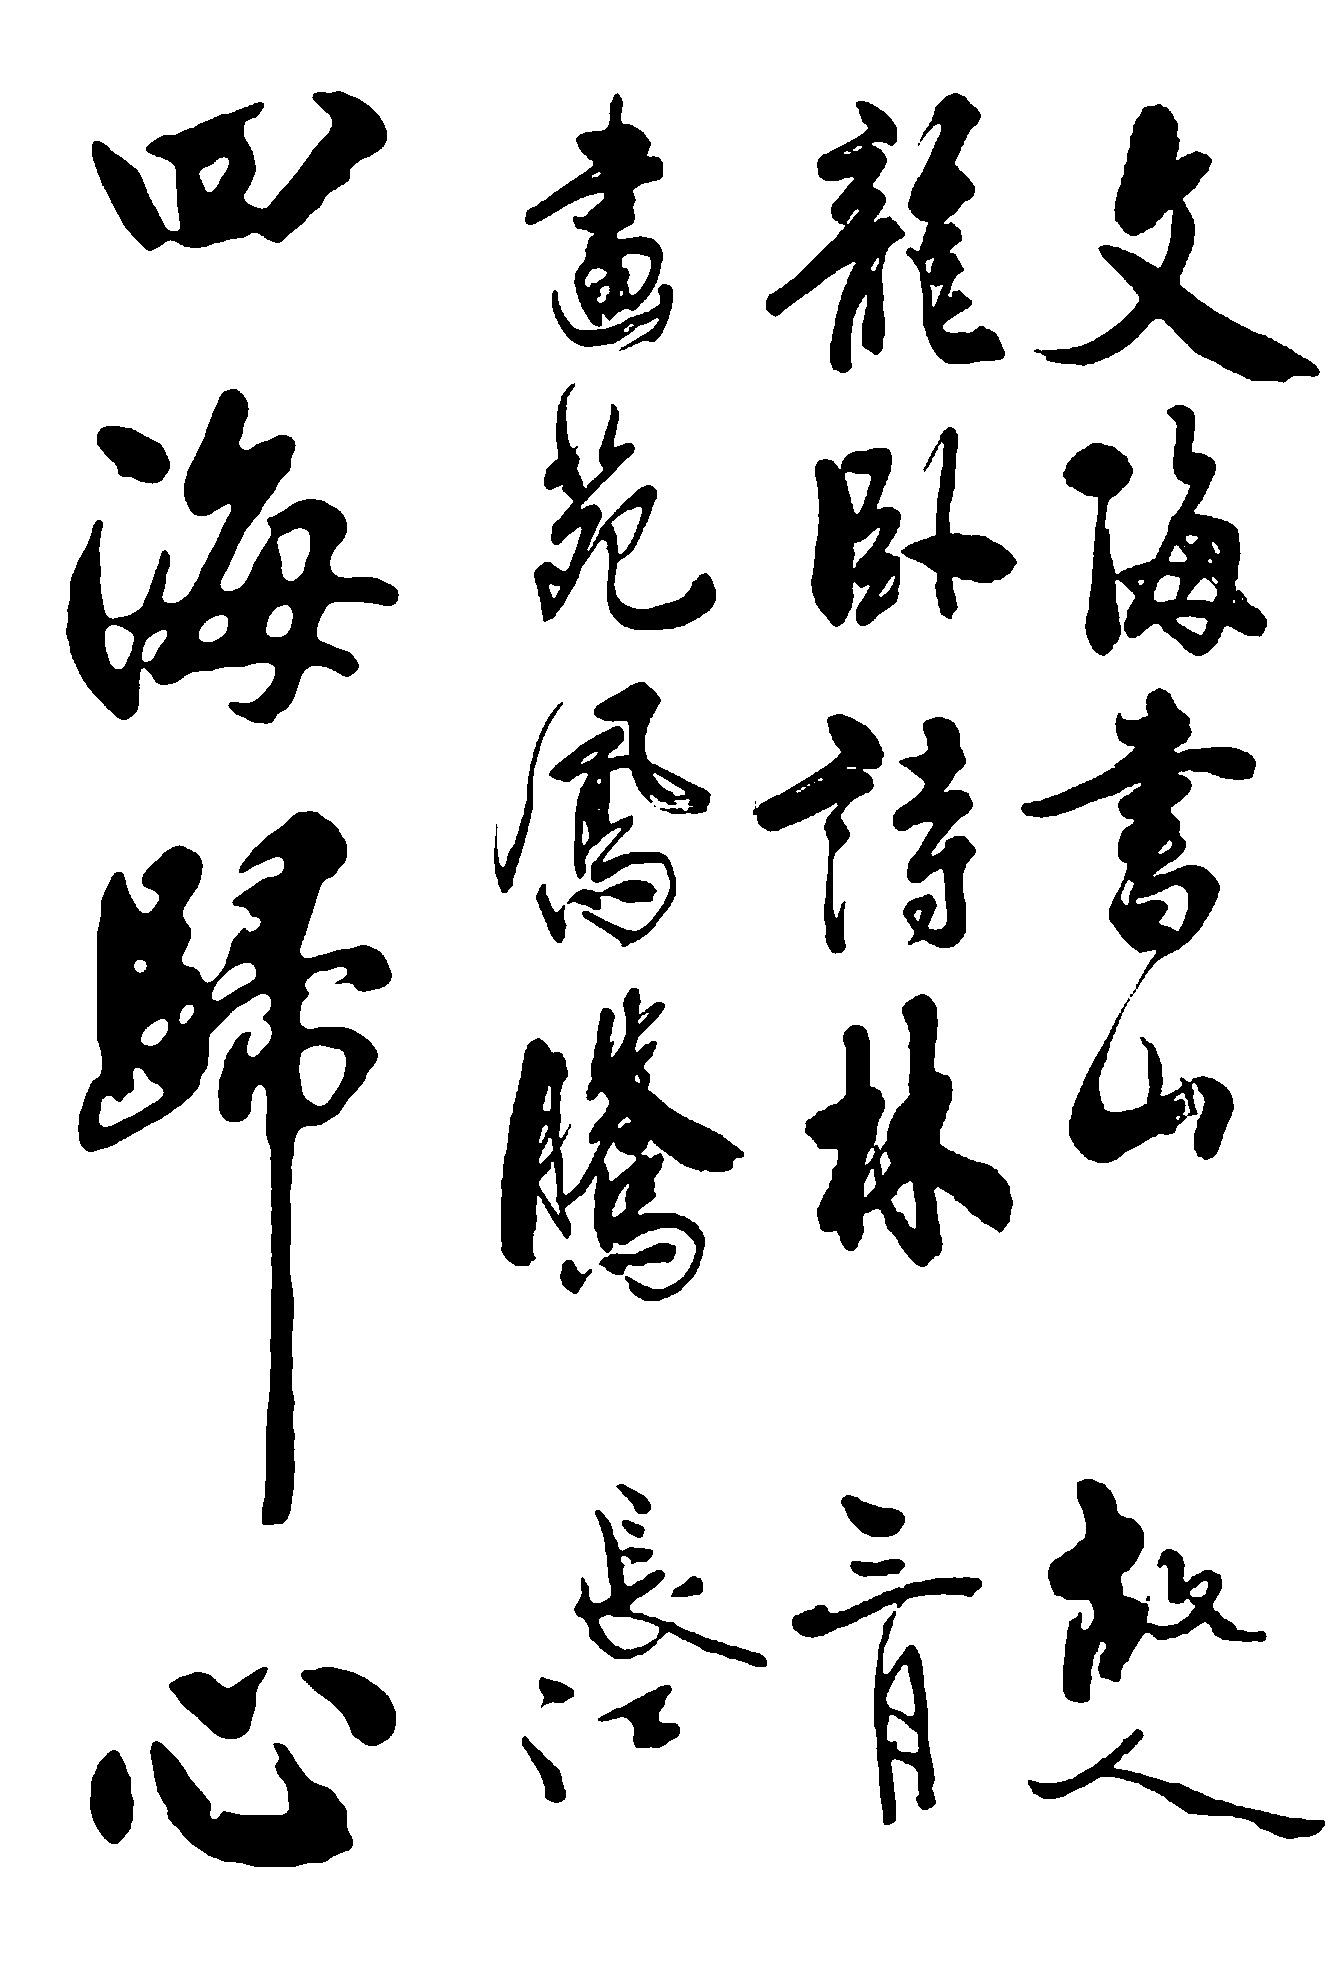 文海書山
龍卧詩林
畫苑鳳騰
故人
三月
長江
四海歸心